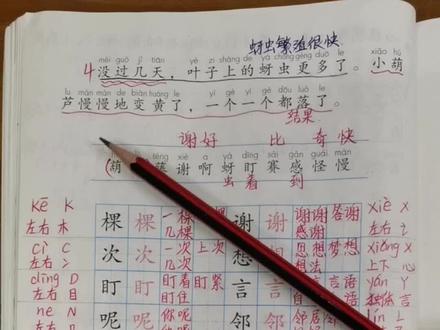 蚜虫繁殖很快
méi guò jǐ tiān yè zi shàng de yá chóng gèng duō le xiǎo hú
4 没过几天，叶子上的蚜虫更多了。小葫
lu màn màn de biàn huáng le yí gè yí gè dōu luò le
芦慢慢地变黄了，一个一个都落了。
结果
谢好 比 奇 快
téng xiè a yá dīng sài gǎn guài màn
葫 藤 谢 啊 蚜 盯 赛 感 怪 慢
虫 看 到
kē K 棵 棵 一棵 几棵 谢 谢 谢谢 答谢 感谢 xiè X
左右 木 左右 讠
cì C 次 次 一次 上次 几次 想 想 思想 梦想 想法 xiǎng X
左右 冫 上下 心
dīng D 盯 盯 盯着 盯紧 盯住 言 言 言语 yán Y
左右 目 独体 言
ne N 呢 呢 你呢 邻 邻 邻居 lín L
左右